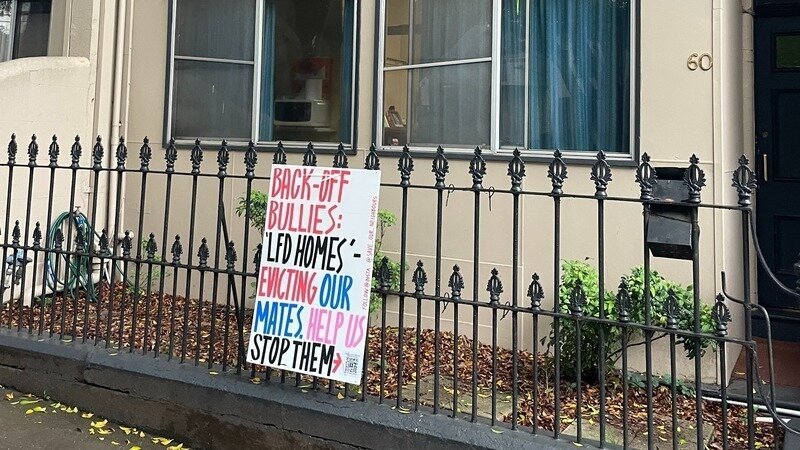 BACK-OFF
BULLIES:
'LFD HOMES'-
EVICTING OUR
MATES, HELP US
STOP THEM →
60